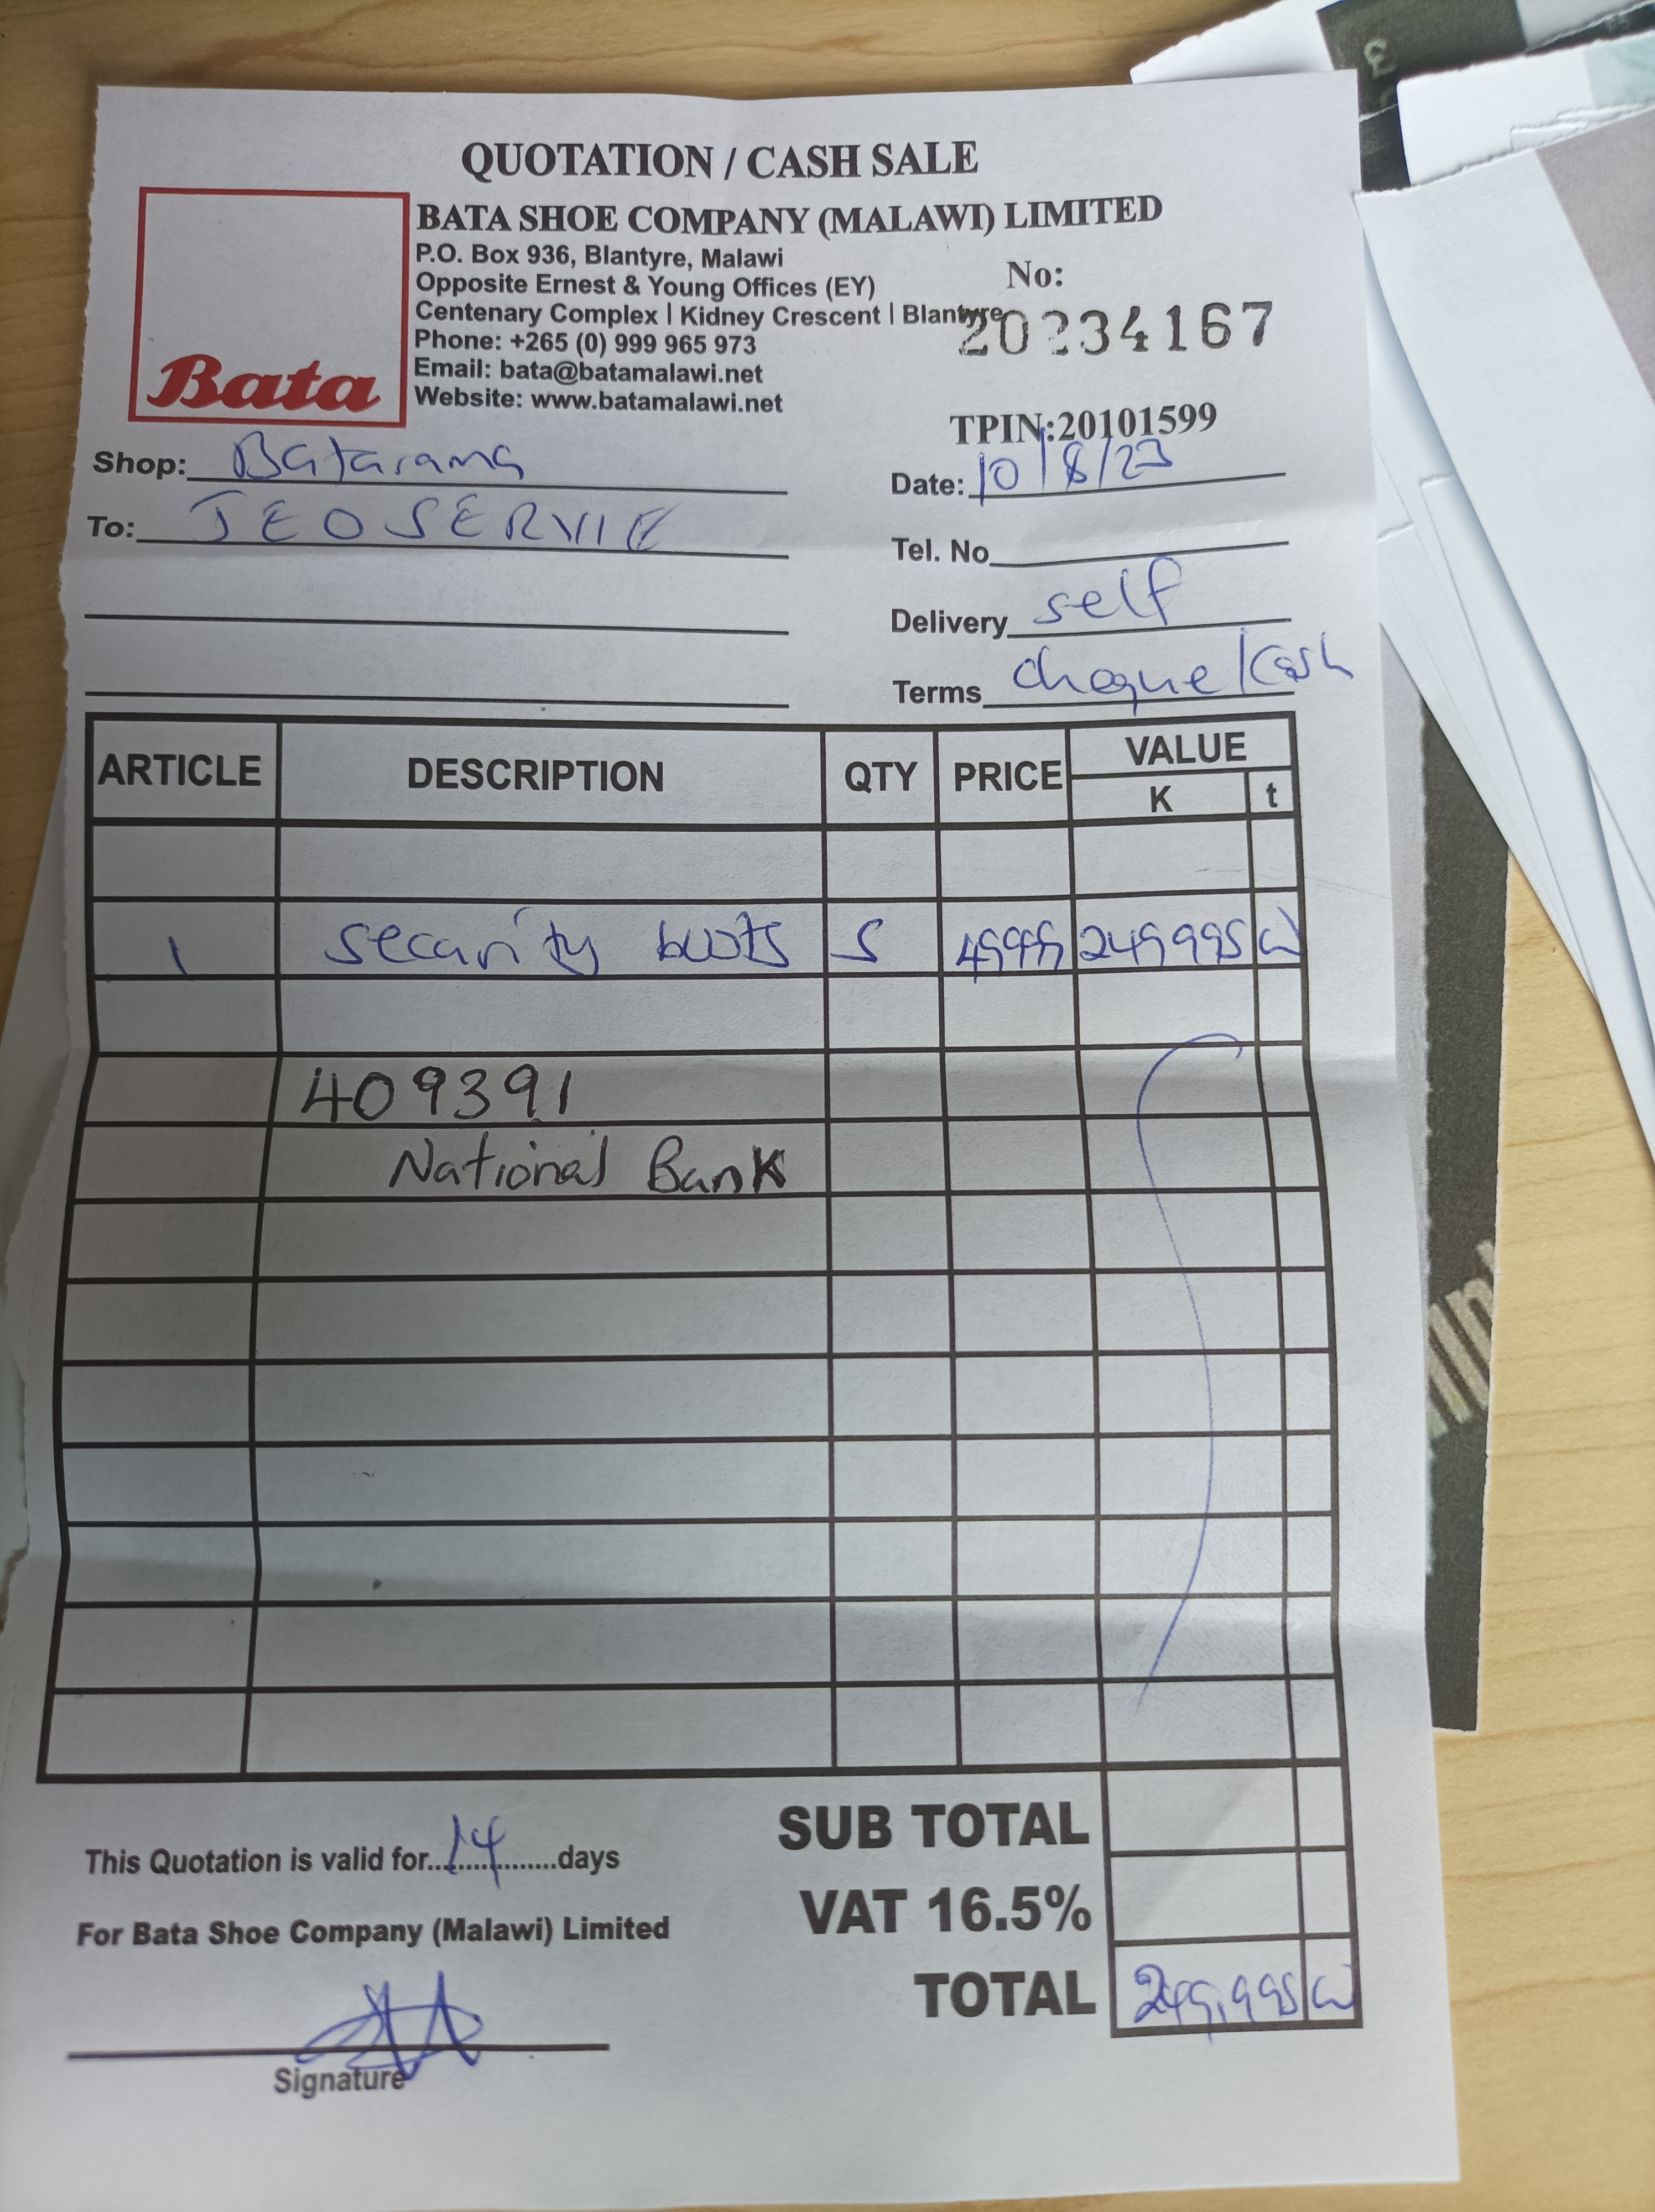 QUOTATION / CASH SALE
Bata
BATA SHOE COMPANY (MALAWI) LIMITED
P.O. Box 936, Blantyre, Malawi
Opposite Ernest & Young Offices (EY)
Centenary Complex | Kidney Crescent | Blantyre
Phone: +265 (0) 999 965 973
Email: bata@batamalawi.net
Website: www.batamalawi.net
No:
20234167
TPIN:20101599
Shop: Batarama
Date: 10/8/23
To: JEOSERVIE
Tel. No
Delivery self
Terms cheque/Cash
ARTICLE DESCRIPTION QTY PRICE VALUE
K t
1 security boots 5 49999 249995 00
409391
National Bank
SUB TOTAL
This Quotation is valid for 14 days
VAT 16.5%
For Bata Shoe Company (Malawi) Limited
TOTAL 249,995 00
Signature